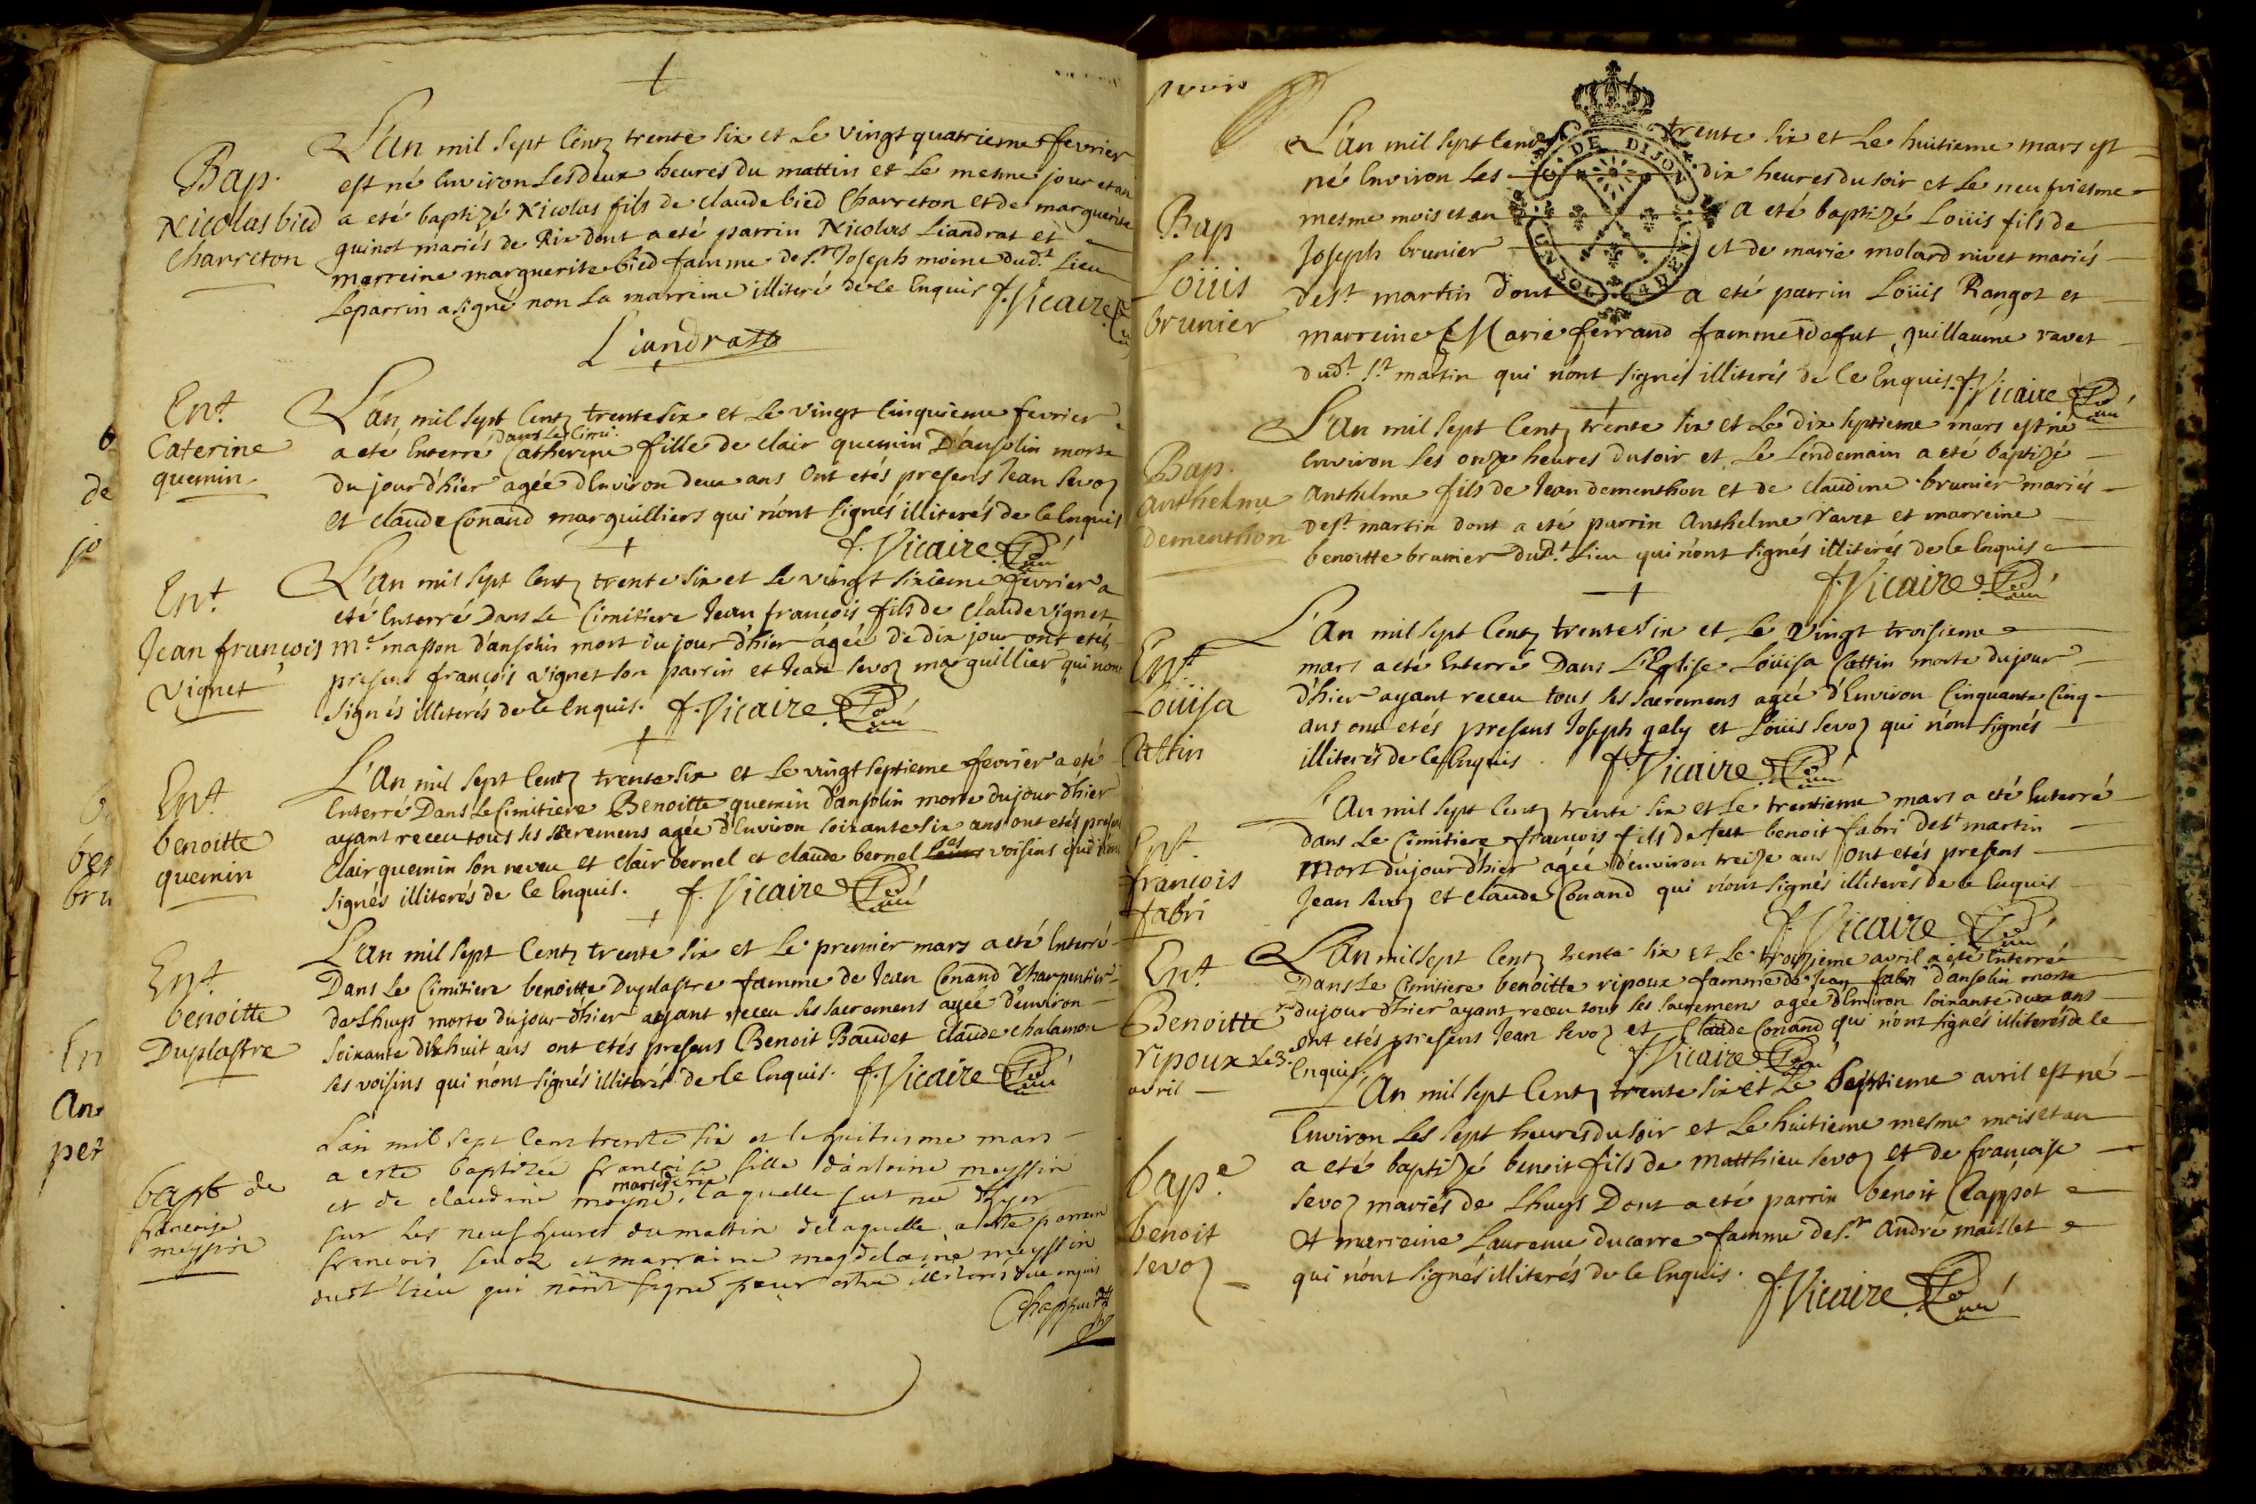 Bap.
Nicolas bied
Charreton
L'an mil sept Centz trente six et Le vingt quatrieme fevrier
est né Environ Les deux heures du mattin et Le mesme jour et an
a eté baptizé Nicolas fils de claude bied Charreton et de marguerite
guinot mariés de Rix dont a eté parrin Nicolas Liandrat et
marreine marguerite bied famme de sr Joseph moine dudt Lieu
Le parrin a signé non La marreine illiteré de ce Enquis f. Vicaire Curé
Liandrat
Ent
Caterine
quemin
L'an mil sept Centz trente six et Le vingt Cinquieme fevrier
dans Le Cimi.
a eté Enterré Catherine fille de clair quemin D'ansolin morte
du jour d'hier agée d'Environ deux ans Ont etés presens Jean sevoz
et claude Conand marguilliers qui n'ont signés illiterés de ce Enquis
f. Vicaire Curé
Ent
Jean françois
vignet
L'an mil sept Centz trente six et Le vingt sixieme fevrier a
eté Enterré Dans Le Cimitiere Jean françois fils de claude vignet
me masson d'ansolin mort du jour d'hier agée de dix jour ont etés
presens françois vignet son parrin et Jean sevoz marguillier qui n'ont
signés illiterés de ce Enquis. f. Vicaire Curé
Ent
benoitte
quemin
L'an mil sept Centz trente six et Le vingt septieme fevrier a eté
Enterré Dans Le Cimitiere Benoitte quemin d'ansolin morte du jour d'hier
ayant receu tous ses sacremens agée d'Environ soixante six ans ont etés presens
Clair quemin son neveu et clair bernel et claude bernel ses voisins qui n'ont
signés illiterés de ce Enquis. f. Vicaire Curé
Ent
benoitte
Duplastre
L'an mil sept Centz trente six et Le premier mars a eté Enterré
Dans Le Cimitiere benoitte Duplastre famme de Jean Conand Charpentier
de Lhuys morte du jour d'hier ayant receu ses sacremens agée d'environ
soixante dix huit ans ont etés presens Benoit Baudet claude chalamon
ses voisins qui n'ont signés illiterés de ce Enquis. f. Vicaire Curé
bapt de
francoise
meyssin
L'an mil sept Cent trente six et le huitiesme mars
a esté baptizée francoise fille d'antoine meyssin
et de claudine moyne, laquelle fut née d'hyer
sur les neuf heures du mattin de laquelle a esté parrain
francois sevoz et marraine magdelaine meyssin
dudt lieu qui n'ont signé pour estre illiterés de ce enquis
Chappuis
Bap
Loüis
brunier
L'an mil sept Cents trente six et Le huitieme mars est
né Environ Les dix heures du soir et Le neufviesme
mesme mois et an a eté baptizé Loüis fils de
Joseph brunier et de marie molard nivet mariés
de st martin dont a eté parrin Loüis Rangot et
marreine Marie ferrand famme de fut guillaume ravet
dudt st martin qui n'ont signés illiterés de ce Enquis. f. Vicaire Curé
DE DIJON
Bap.
Anthelme
dementhon
L'an mil sept Centz trente six et Le dix septieme mars est né
Environ Les onze heures du soir et Le Lendemain a eté baptizé
Anthelme fils de Jean dementhon et de claudine brunier mariés
de st martin dont a eté parrin Anthelme ravet et marreine
benoitte brunier dudt Lieu qui n'ont signés illiterés de ce Enquis
f. Vicaire Curé
Ent
Loüisa
Cattin
L'an mil sept Centz trente six et Le vingt troisieme
mars a eté Enterré Dans L'Eglise Loüisa Cattin morte du jour
d'hier ayant receu tous ses sacremens agée d'Environ Cinquante Cinq
ans ont etés presens Joseph galy et Loüis sevoz qui n'ont signés
illiterés de ce Enquis. f. Vicaire Curé
Ent
francois
fabri
L'an mil sept Centz trente six et Le trentieme mars a eté Enterré
dans Le Cimitiere francois fils de feut benoit fabri de st martin
mort du jour d'hier agée d'environ treize ans ont etés presens
Jean sevoz et claude Conand qui n'ont signés illiterés de ce Enquis
f. Vicaire Curé
Ent
Benoitte
ripoux Le 3e
avril
L'an mil sept Centz trente six et Le troizieme avril a eté Enterré
dans Le Cimitiere benoitte ripoux famme de Jean fabri d'ansolin morte
du jour d'hier ayant receu tous ses sacremens agée d'Environ soixante deux ans
ont etés presens Jean sevoz et Claude Conand qui n'ont signés illiterés de ce
Enquis. f. Vicaire Curé
bape
benoit
sevoz
L'an mil sept Centz trente six et Le septieme avril est né
Environ Les sept heures du soir et Le huitieme mesme mois et an
a eté baptizé benoit fils de matthieu sevoz et de francoise
sevoz mariés de Lhuys Dont a eté parrin benoit Clappot
et marreine Laurence ducarre famme de sr André maillet
qui n'ont signés illiterés de ce Enquis. f. Vicaire Curé